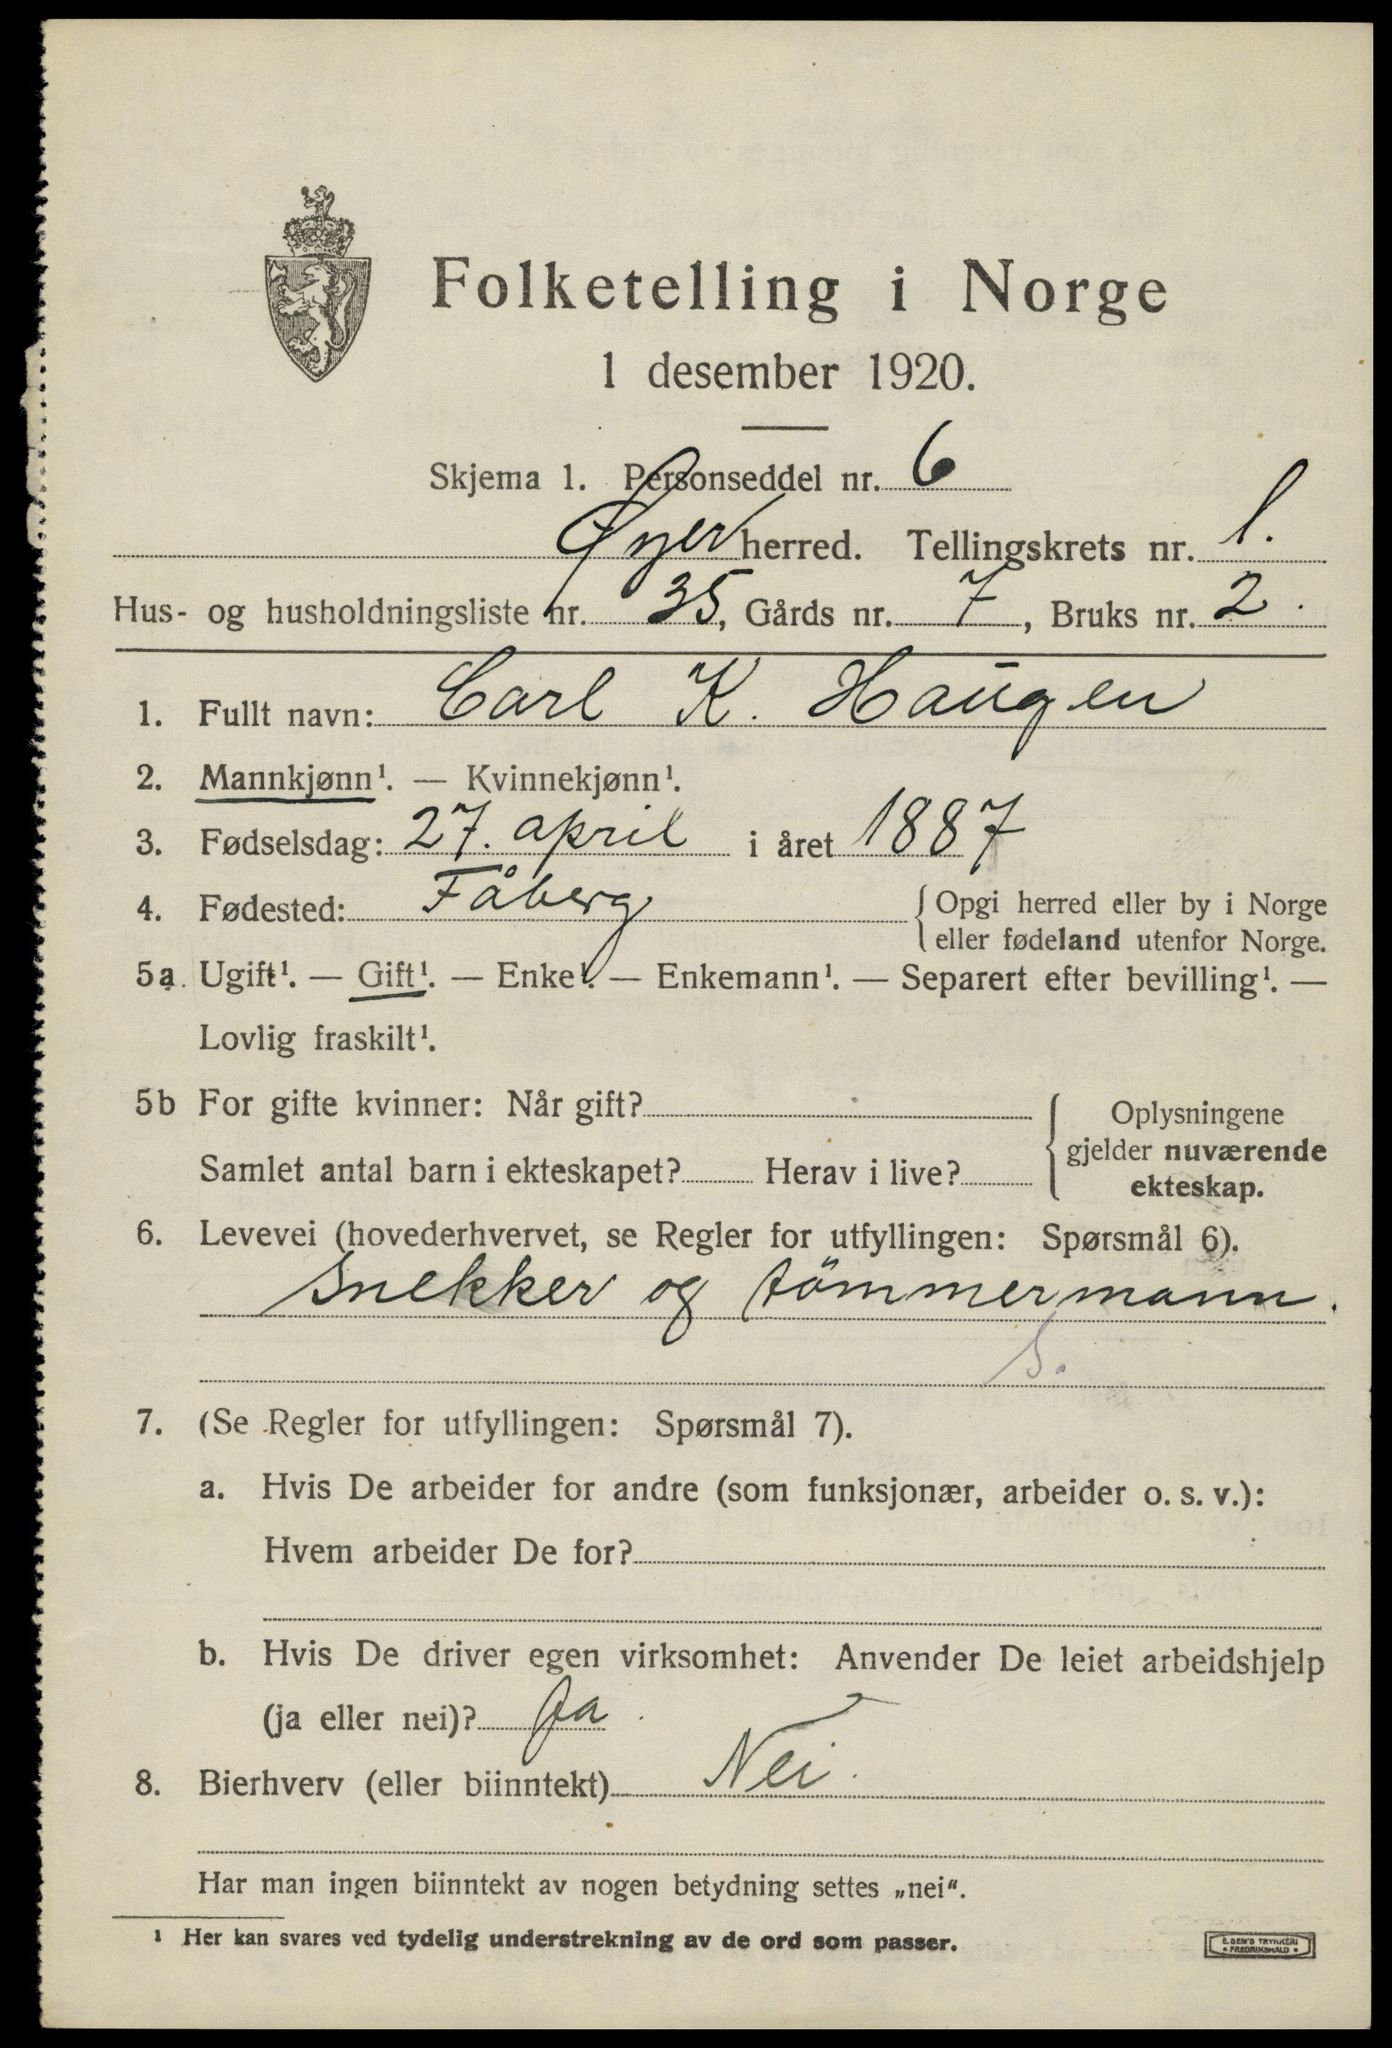 Folketelling i Norge
1 desember 1920.
Skjema 1. Personseddel nr. 6
Øyer herred. Tellingskrets nr. 1.
Hus- og husholdningsliste nr. 35, Gårds nr. 7, Bruks nr. 2.
1. Fullt navn: Carl K. Haugen
2. Mannkjønn¹. — Kvinnekjønn¹.
3. Fødselsdag: 27. april i året 1887
4. Fødested: Fåberg { Opgi herred eller by i Norge
eller fødeland utenfor Norge.
5a. Ugift¹. — Gift¹. — Enke¹. — Enkemann¹. — Separert efter bevilling¹. —
Lovlig fraskilt¹.
5b For gifte kvinner: Når gift?
Samlet antal barn i ekteskapet? Herav i live?
{ Oplysningene
gjelder nuværende
ekteskap.
6. Levevei (hovederhvervet, se Regler for utfyllingen: Spørsmål 6).
Snekker og tömmermann.
S.
7. (Se Regler for utfyllingen: Spørsmål 7).
a. Hvis De arbeider for andre (som funksjonær, arbeider o. s. v.):
Hvem arbeider De for?
b. Hvis De driver egen virksomhet: Anvender De leiet arbeidshjelp
(ja eller nei)? Ja.
8. Bierhverv (eller biinntekt) Nei.
Har man ingen biinntekt av nogen betydning settes „nei“.
¹ Her kan svares ved tydelig understrekning av de ord som passer.
E. SEM'S TRYKKERI
• FREDRIKSHALD •